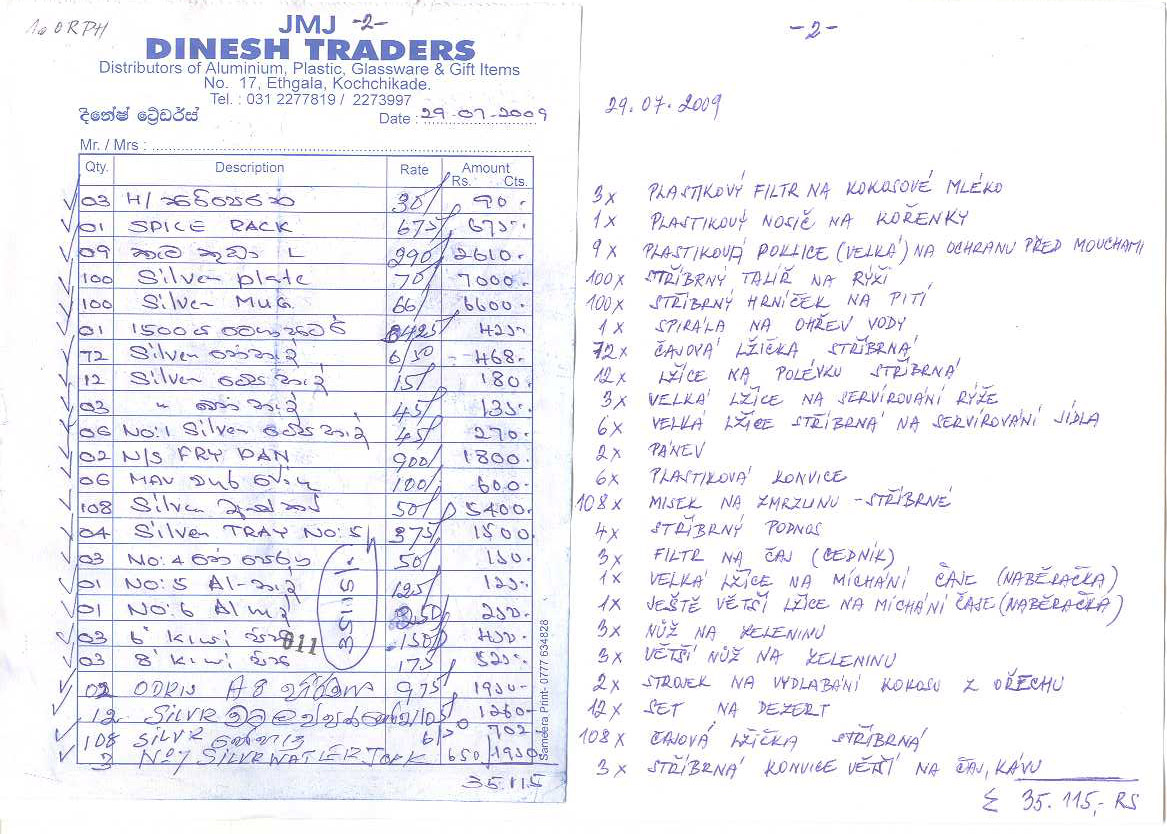 16 ORPH
JMJ -2-
DINESH TRADERS
Distributors of Aluminium, Plastic, Glassware & Gift Items
No. 17, Ethgala, Kochchikade.
Tel. : 031 2277819 / 2273997
දිනේෂ් ට්‍රේඩර්ස් Date : 29-07-2009
Mr. / Mrs :
Qty. Description Rate Amount
Rs. Cts.
03 H/ 30/ 90.
01 SPICE RACK 675/ 675.
09 L 290/ 2610.
100 Silver plate 70/ 7000.
100 Silver Mug 66/ 6600.
01 1500 425/ 425.
72 Silver 6/50 468.
12 Silver 15/ 180.
03 " 45/ 135.
06 NO:1 Silver 45/ 270.
02 N/S FRY PAN 900/ 1800.
06 100/ 600.
108 Silver 50/ 5400.
04 Silver TRAY NO:5 375/ 1500.
03 NO:4 50/ 150.
01 NO:5 Al- 125/ 125.
01 NO:6 Al 250/ 250.
03 6" 150/ 450.
03 8" 175/ 525.
02 A8 975/ 1950.
12 SILVR 105/ 1260.
108 SILVR 6/50 702.
3 No 7 SILVR WATER 650/ 1950.
35.115
35115/.
011
Sameera Print- 0777 634828
-2-
29.07.2009
3x PLASTIKOVÝ FILTR NA KOKOSOVÉ MLÉKO
1x PLASTIKOVÝ NOSIČ NA KOŘENKY
9x PLASTIKOVÁ POKLICE (VELKÁ) NA OCHRANU PŘED MOUCHAMI
100x STŘÍBRNÝ TALÍŘ NA RÝŽI
100x STŘÍBRNÝ HRNÍČEK NA PITÍ
1x SPIRÁLA NA OHŘEV VODY
72x ČAJOVÁ LŽIČKA STŘÍBRNÁ
12x LŽÍCE NA POLÉVKU STŘÍBRNÁ
3x VELKÁ LŽÍCE NA SERVÍROVÁNÍ RÝŽE
6x VELKÁ LŽÍCE STŘÍBRNÁ NA SERVÍROVÁNÍ JÍDLA
2x PÁNEV
6x PLASTIKOVÁ KONVICE
108x MISEK NA ZMRZLINU - STŘÍBRNÉ
4x STŘÍBRNÝ PODNOS
3x FILTR NA ČAJ (CEDNÍK)
1x VELKÁ LŽÍCE NA MÍCHÁNÍ ČAJE (NABĚRAČKA)
1x JEŠTĚ VĚTŠÍ LŽÍCE NA MÍCHÁNÍ ČAJE (NABĚRAČKA)
3x NŮŽ NA ZELENINU
3x VĚTŠÍ NŮŽ NA ZELENINU
2x STROJEK NA VYDLABÁNÍ KOKOSU Z OŘECHU
12x SET NA DEZERT
108x ČAJOVÁ LŽIČKA STŘÍBRNÁ
3x STŘÍBRNÁ KONVICE VĚTŠÍ NA ČAJ, KÁVU
Σ 35.115,- RS